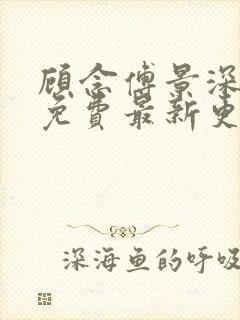 顾念傅景深
免費最新
深海鱼的呼吸